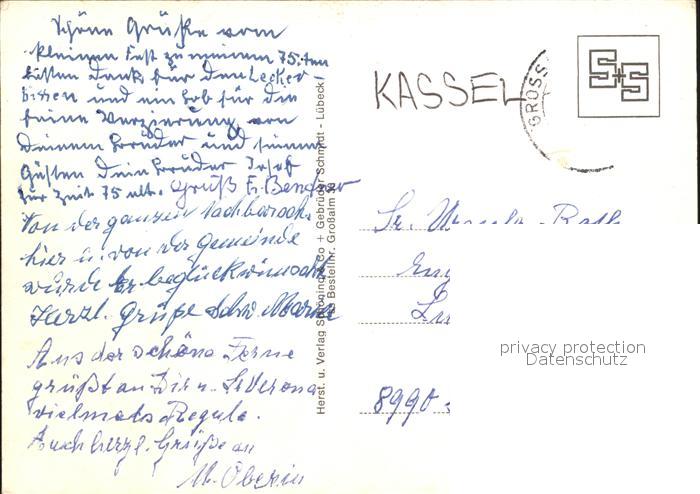 Schöne Grüße vom
kleinen Fest zu meinem 75.ten
besten Dank für den Lecker-
bissen und ein Lob für die
feine Verzierung von
Deinem Bruder und seinen
Gästen Dein Bruder Josef
zur Zeit 75 alt. Gruß F. Bender
Von der ganzen Nachbarsch.
hier u. von der Gemeinde
wurde Er beglückwünscht
Herzl. Grüße Schw. Maria
Aus der schöne Ferne
grüßt an Dir u. Sr Verona
vielmals Regula.
Auch herzl. Grüße an
M. Oberin
Herst. u. Verlag Schöning & Co + Gebrüder Schmidt - Lübeck
Bestellnr. Großalm
KASSEL
GROSS
S+S
Sr.
8990
privacy protection
Datenschutz